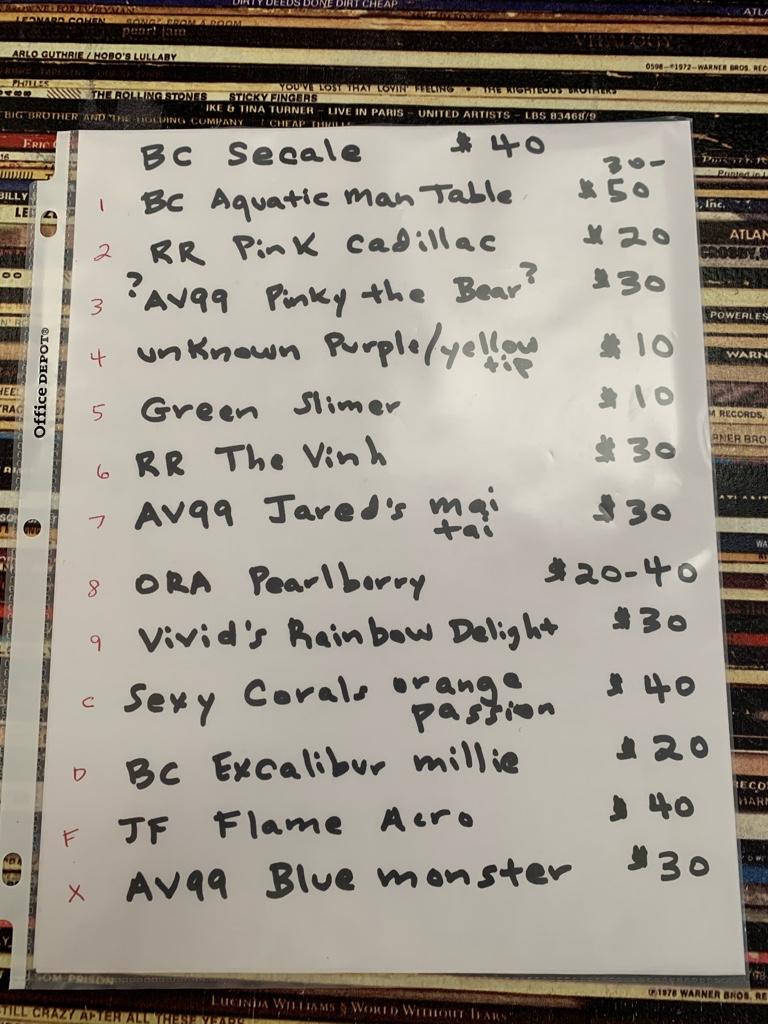 DIRTY DEEDS DONE DIRT CHEAP
LEONARD COHEN SONGS FROM A ROOM
pearl jam VITALOGY
ARLO GUTHRIE / HOBO'S LULLABY
PHILLES YOU'VE LOST THAT LOVIN' FEELING • THE RIGHTEOUS BROTHERS
THE ROLLING STONES STICKY FINGERS
IKE & TINA TURNER - LIVE IN PARIS - UNITED ARTISTS - LBS 83468/9
BIG BROTHER AND THE HOLDING COMPANY CHEAP
BC Secale $ 40
30-
1 BC Aquatic Man Table $ 50
2 RR Pink Cadillac $ 20
3 ? AV99 Pinky the Bear ? $ 30
4 unknown Purple/yellow $ 10
tip
5 Green Slimer $ 10
6 RR The Vinh $ 30
7 AV99 Jared's mai $ 30
tai
8 ORA Pearlberry $ 20-40
9 Vivid's Rainbow Delight $ 30
C Sexy Corals orange $ 40
passion
D BC Excalibur millie $ 20
F JF Flame Acro $ 40
X AV99 Blue monster $ 30
Office DEPOT®
Inc.
POWERLES
M RECORDS,
©1978 WARNER BROS. REC
LUCINDA WILLIAMS WORLD WITHOUT TEARS
STILL CRAZY AFTER ALL THESE YEARS